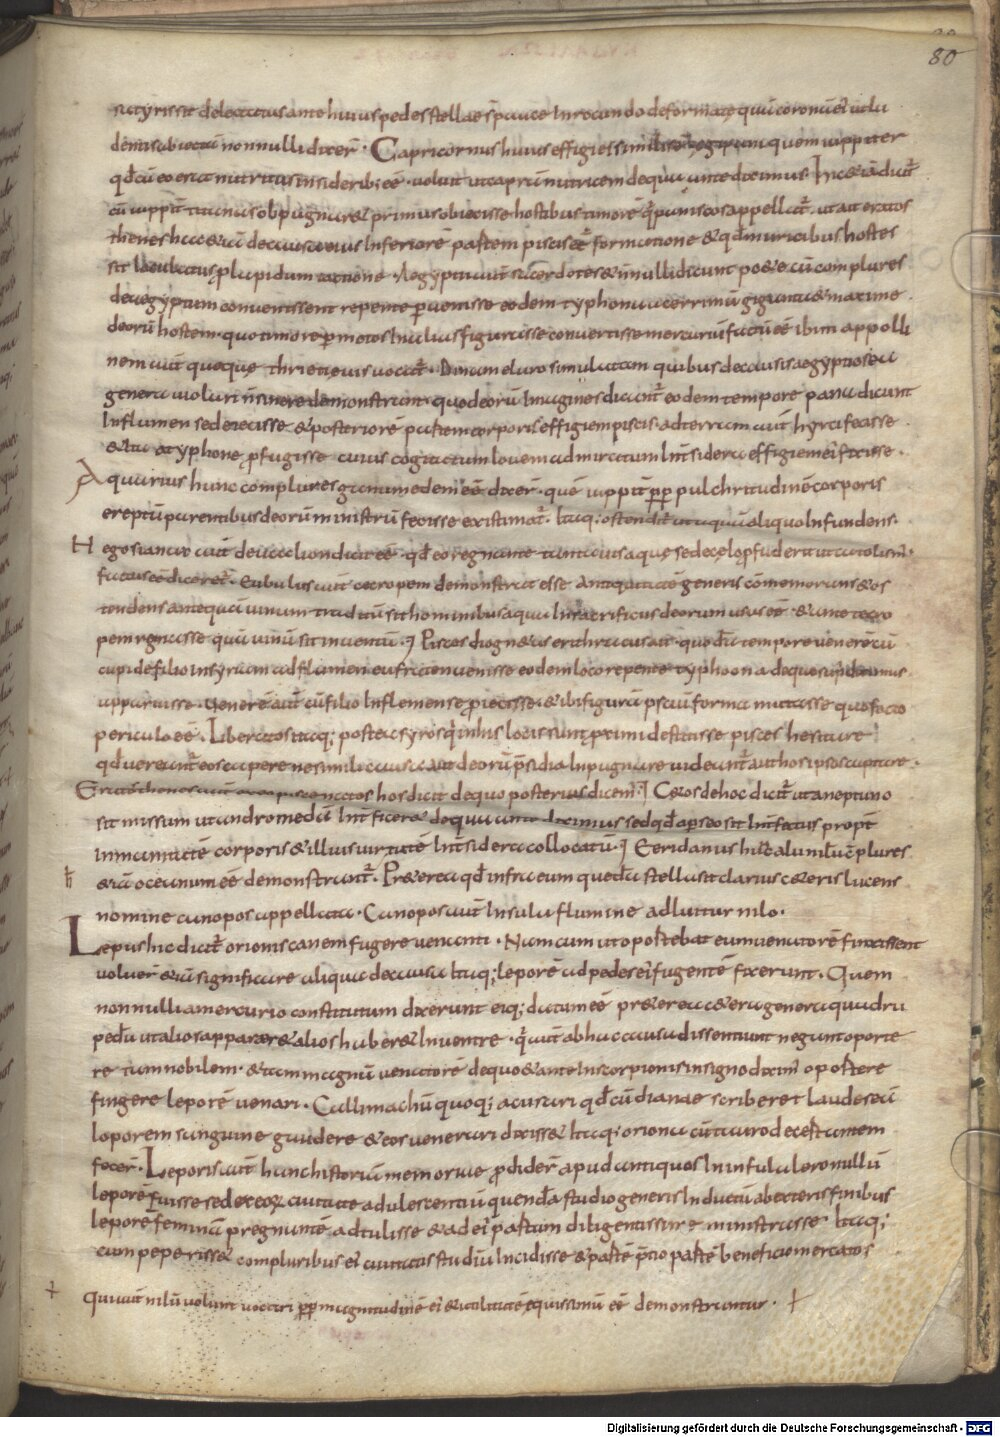 80
satyris sit delectatus ante huius pedes stellae s̄ paucae In rotundo deformatae quā coronā eī ut lu
dentis abiectā non nulli dixeř. Capricornus huius effigies similis ē egipani quem iuppiter
qđ cū eo erat nutritus in siderib; eē. uoluit ut caprā nutricem de qua ante diximus. Hic etiā dicit̃
cū iuppit̄ titanas obpugnaret primus obiecisse hostibus timorē q̃ panicos appellat̃. ut ait eratos
thenes hac etiā de causa eius Inferiorē partem piscis eē formatione & qđ muricibus hostes
sit iaculatus ꝓ lapidum iactione. Aegyptii aūt sacerdotes & nnulli dicunt poetae cū complures
dei aegyptum conuenissent repente ꝑuenisse eodem typhona acerrimū giganta & maxime
deorū hostem. quo timore ꝑmotos In alias figuras se conuertisse mercuriū factū eē ibim appolli
nem aūt quoque thriciauis uocat̃. Dianam eluro simulatam quibus de causis aegyptios ea
genera uiolari n̄ sinere demonstrant. quod eorū Imagines dicant̃ eodem tempore pana dicunt
In flumen se deiecisse & posteriorē partem corporis effigiem piscis. alteram aūt hyrci fecisse
& ita a typhone ꝓfugisse cuius cogitatum Iouem admiratum Int̄ sidera effigiem eī fixisse.
Aquarius hunc complures ganimedem eē dixeř. quē iuppit̄ ꝓpt̄ pulchritudinē corporis
ereptū parentibus deorū ministrū fecisse existimat̃. Itaq; ostendit̃ ut aquā aliquo Infundens.
Hegosianax aūt deucalion dicit eē. qđ eo regnante tanta uis aquę se de cęlo ꝓfuderit ut cataclism̄.
factus eē diceret̃. Eubulus aūt cecropem demonstrat esse Antiquitatē generis cōmemorans & os
tendens antequā uinum traditū sit hominibus aqua In sacrificiis deorum usus eē. & ante cecro
pem regnasse quā uinū sit inuentū. ⁊ Pisces diognetus erithraeus ait quodā tempore uenerē cū
cupidefilio In syriam ad flumen eufraten uenisse eodem loco repente typhoona de quo supra diximus
apparuisse. Uenerē aūt cū filio In flumen se ꝓiecisse & ibi figurā pisciū forma mutasse quo facto
periculo eē. Liberatos itaq; postea syros q̃ in his locis sunt ꝓximi destitisse pisces hesitare
qđ uereant̃ eos capere ne simili causa aut deorū p̄sidia Inpugnare uideant̃ aut hos ipsos captare.
Eratosthenes aūt ex eo pisce natos hos dicit de quo posterius dicem̄. ⁊ Cetos de hoc dicit̃ ut a neptuno
sit missum ut andromedā Int̄ficeret de qua ante diximus sed qđ a ꝑseo sit Int̄fectus propt̄
inmanitatē corporis & illius uirtutē Int̄ sidera collocatū. ⁊ Eeridanus hūc alii nilū cōplures
ħ etiā oceanum eē demonstrant̃. Praeterea qđ infra eum quedā stella sit clarius ceteris lucens
nomine canopos appellata. Canopos aūt Insula flumine adluitur nilo.
Lepus hic dicit̃ orionis canem fugere uenanti. Nam cum ut oportebat eum uenatorē finxissent
uoluer̃ etiā significare aliqua de causa itaq; leporē ad pedes eī fugentē fixerunt. Quem
non nulli a mercurio constitutum dixerunt eiq; datum eē praeter cetera genera quadru
pedū ut alios appareret alios haberet In uentre. q̃ aūt ab hac causa dissentiunt negant oporte
re tam nobilem. & tam magnū uenatorē de quo & ante In scorpionis in signo diximꝰ oportere
fingere leporē uenari. Callimachū quoq; accusari qđ cū dianae scriberet laudes eā
loporem sanguine gaudere & eos uenerari dixisset Itaq; oriona cū tauro decertantem
fecer̃. Leporis aūt hanc historiā memoriae ꝓdider̃ apud antiquos In insula lero nullū
leporē fuisse sed ex eoꝝ ciuitate adulescentiū quendā studio generis Inductū ab exteris finibus
leporē feminā pregnantē adtulisse & ad eī partum diligentissime ministrasse Itaq;
cum peperisset compluribus eī ciuitatis studiū Incidisse & partē p̄tio partē beneficio mercatos
+ qui aūt nilū uolunt uocari ꝓpt̄ magnitudinē eī & utilitatē equissimū eē demonstrantur. +
Digitalisierung gefördert durch die Deutsche Forschungsgemeinschaft - DFG